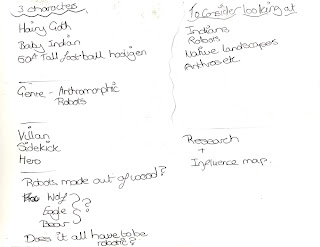 3 characters
Hairy Goth
Baby Indian
60ft Tall football hooligen
Genre - Anthramorphic
Robots
Villian
Sidekick
Hero
Robots made out of wood?
Wolf
Eagle
Bear
?
Does it all have to be
robotic?
To Consider looking at
Indians
Robots
Native landscapes
Research
+
Influence map.